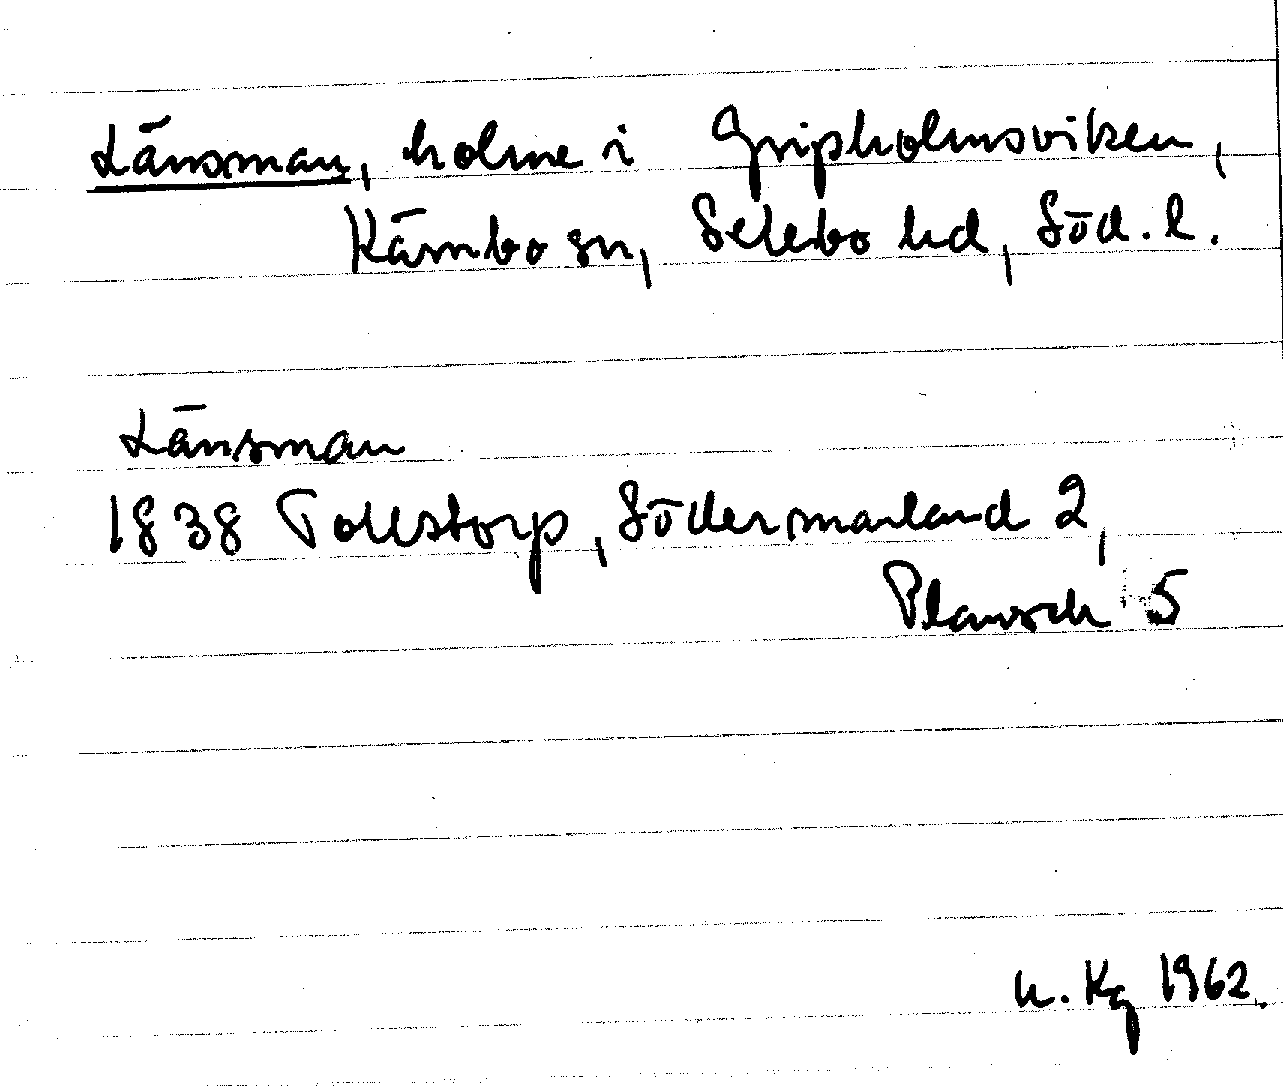 Länsman, holme i Gripholmsviken,
Kärnbo sn, Selebo hd, Söd. l.
Länsman
1838 Tollstorp, Södermanland 2,
Plansch 5
Kg 1962.